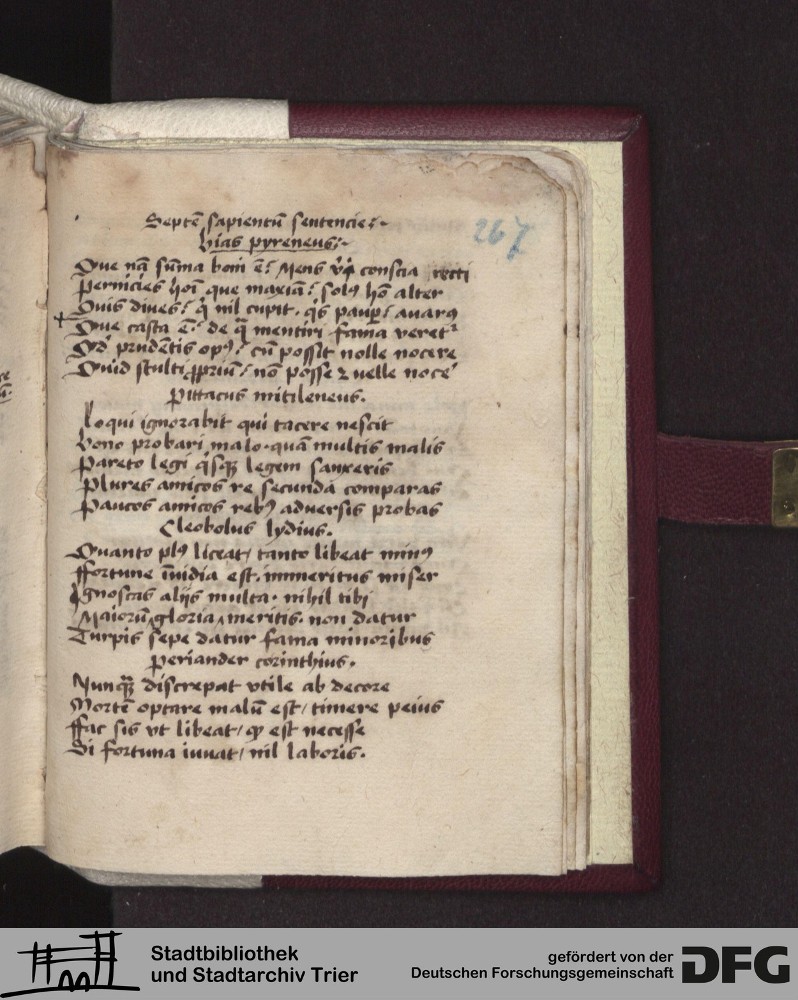 Septē sapientū sentencie
267
bias pyreneus
Que nā sūma boni ē? Mens conscia recti
Pernicies hoī que maxiā? solꝰ hō alter
Quis dives? q̇ nil cupit. q̇s paup̱? avarꝯ
+ Que casta ē? de q̄ mentiri fama veret²
Qd' prudētis opꝰ? cū possit nolle nocere
Quid stulti ꝓpriū? nō posse ⁊ uelle noce'
Pittacus mitileneus.
Loqui ignorabit qui tacere nescit
bono probari malo. quā multis malis
Pareto legi q̇sqꝫ legem sanxeris
Plures amicos re secunda comparas
Paucos amicos rebꝰ adversis probas
Cleobolus lydius.
Quanto plꝰ liceat / tanto libeat minꝰ
ffortune īuidia est. immeritus miser
Ignoscas aliis multa. nihil tibi
Maiorū gloria meritis. non datur
Turpis sepe datur fama minoribus
Periander corinthius.
Nunqꝫ discrepat vtile ab decore
Mortē optare malū est / timere peius
ffac sis vt libeat / qp est necesse
Si fortuna iuuat / nil laboris.
Stadtbibliothek
und Stadtarchiv Trier
gefördert von der
Deutschen Forschungsgemeinschaft
DFG